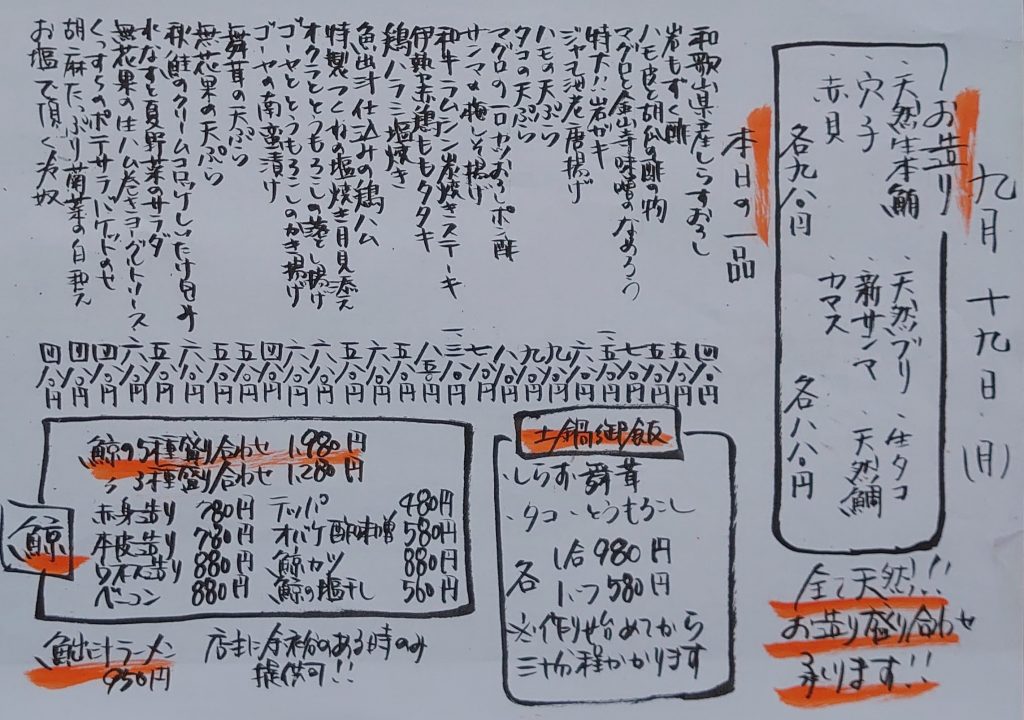 九月十九日(月)
お造り
・天然生本鮪
・穴子
・赤貝
各九八〇円
・天然ブリ
・新サンマ
・カマス
・生タコ
・天然鯛
各八八〇円
全て天然!!
お造り盛り合わせ
承ります!!
本日の一品
和歌山県産しらすおろし 四八〇円
岩もずく酢 五八〇円
ハモ皮と胡瓜の酢の物 五八〇円
マグロと金山寺味噌のなめろう 七八〇円
特大!!岩ガキ
ジャコ海老唐揚げ 六八〇円
ハモの天ぷら 九八〇円
タコの天ぷら 九八〇円
マグロの一口カツおろしポン酢 八八〇円
サンマの梅しそ揚げ 七八〇円
和牛ラムシン炭焼きステーキ
伊勢赤鶏ももタタキ 八五〇円
鶏ハラミ塩焼き 五八〇円
魚出汁仕込みの鶏ハム 六八〇円
特製つくねの塩焼き月見添え 五八〇円
オクラととうもろこしの落とし揚げ 六八〇円
ゴーヤととうもろこしのかき揚げ 六八〇円
ゴーヤの南蛮漬け 四八〇円
舞茸の天ぷら 五八〇円
無花果の天ぷら 六八〇円
秋鮭のクリームコロッケしいたけ包み
水なすと夏野菜のサラダ
無花果の生ハム巻きヨーグルトソース 六八〇円
くんすらのポテサラバゲットのせ 四八〇円
胡麻たっぷり菊菜の白和え 四八〇円
お塩で頂く冷奴 四八〇円
土鍋御飯
・しらす・舞茸
・タコ・とうもろこし
各
1合 980円
1/2 580円
※作り始めてから
三十分程かかります
鯨
鯨の5種盛り合わせ 1,980円
〃 3種盛り合わせ 1,280円
赤身造り 780円
本皮造り 780円
ウネス造り 880円
ベーコン 880円
テッパ 480円
オバケ酢味噌 580円
鯨カツ 880円
鯨の塩干し 560円
魚出汁ラーメン
950円
店主に余裕のある時のみ
提供可!!